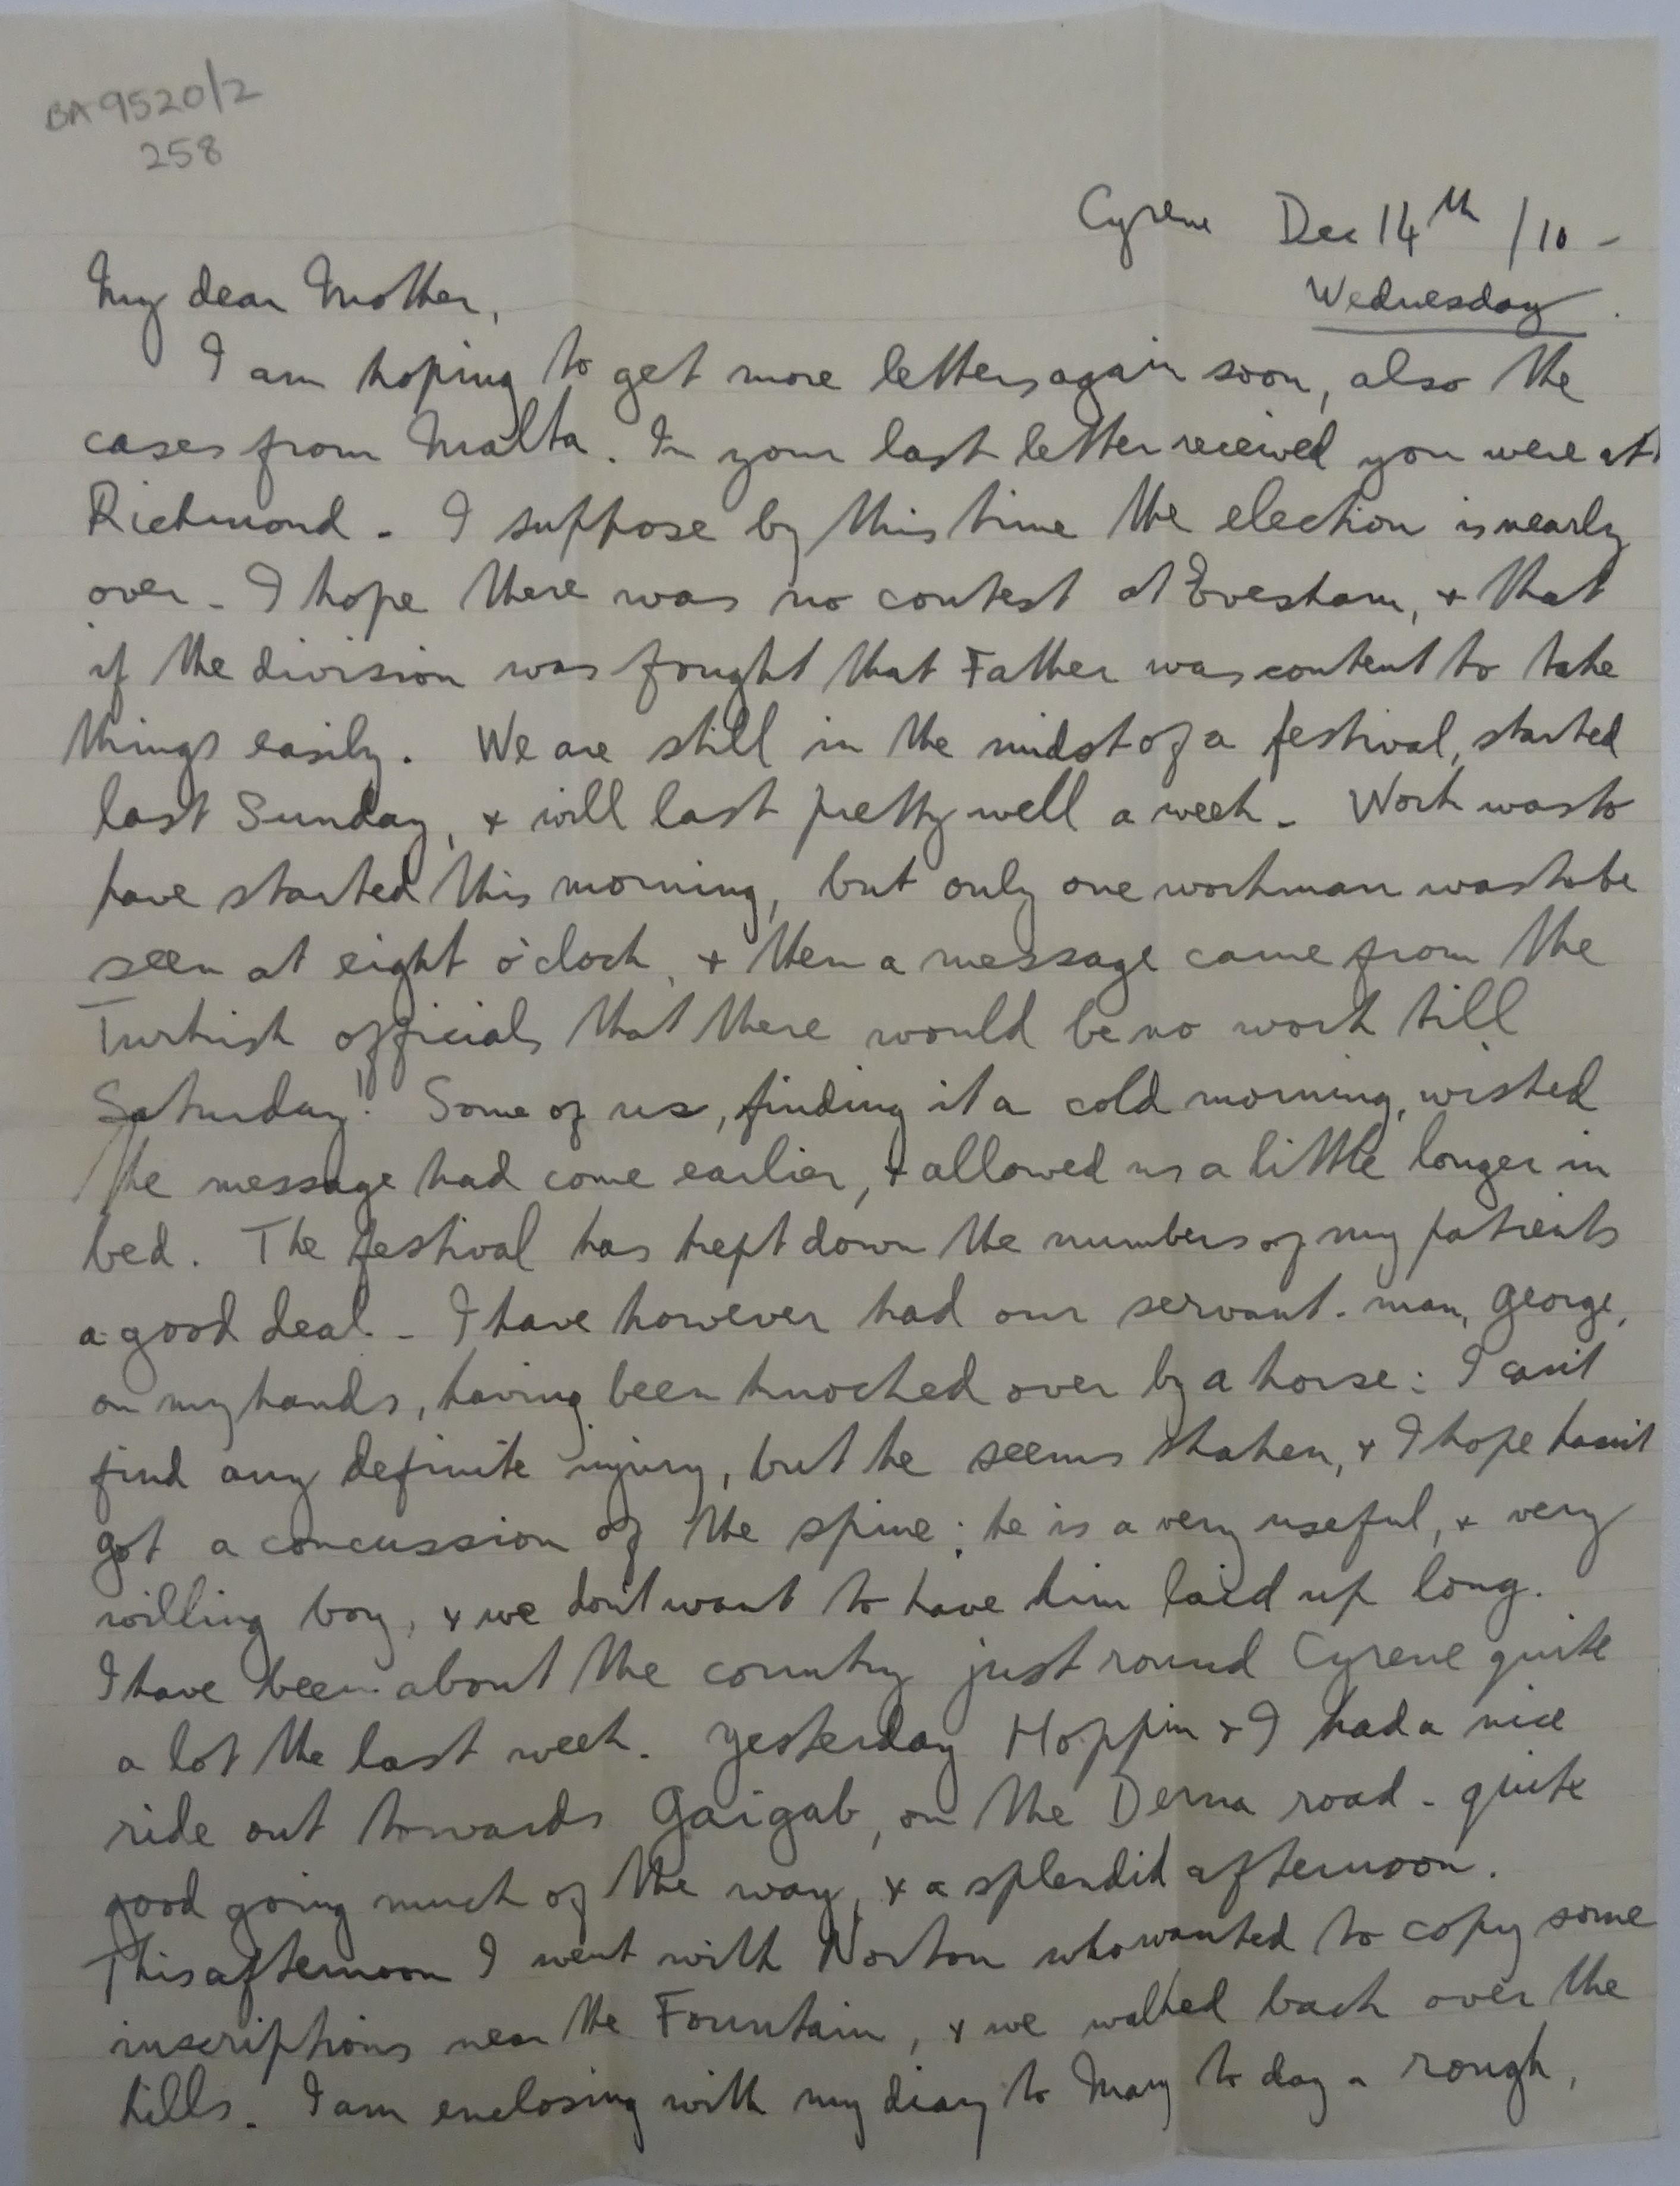 BA 9520/2
258
Cyrene Dec 14th /10 -
Wednesday.
My dear Mother,
I am hoping to get more letters again soon, also the
cases from Malta. In your last letter received you were at
Richmond - I suppose by this time the election is nearly
over - I hope there was no contest at Evesham, + that
if the division was fought that Father was content to take
things easily. We are still in the midst of a festival, started
last Sunday, + will last pretty well a week - Work was to
have started this morning, but only one workman was to be
seen at eight o'clock, + then a message came from the
Turkish officials that there would be no work till
Saturday! Some of us, finding it a cold morning, wished
the message had come earlier, + allowed us a little longer in
bed. The festival has kept down the numbers of my patients
a good deal - I have however had our servant-man, George,
on my hands, having been knocked over by a horse: I can't
find any definite injury, but he seems shaken, + I hope hasn't
got a concussion of the spine: he is a very useful, + very
willing boy, + we don't want to have him laid up long.
I have been about the country just round Cyrene quite
a lot the last week. Yesterday Hoppin + I had a nice
ride out towards Gaigab, on the Derna road - quite
good going much of the way, + a splendid afternoon.
This afternoon I went with Norton who wanted to copy some
inscriptions near the Fountain, + we walked back over the
hills. I am enclosing with my diary to Mary to day a rough,